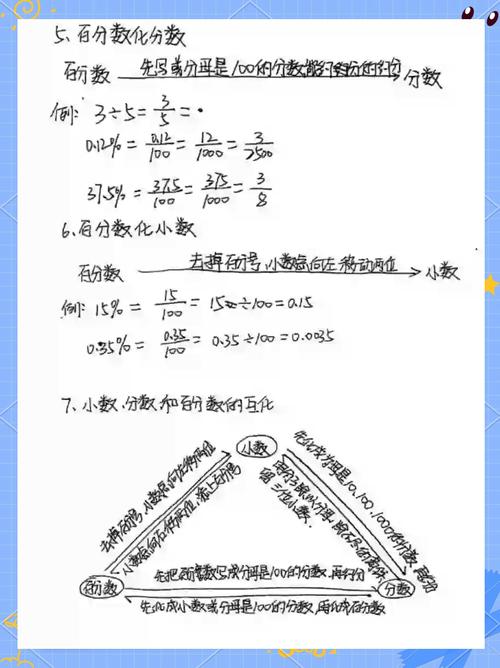 5、百分数化分数
百分数 先写成分母是100的分数能约分的约分 分数
例: 3÷5=3/5=
0.12%=0.12/100=12/1000=3/2500
37.5%=37.5/100=375/1000=3/8
6、百分数化小数
百分数 去掉百分号,小数点向左移动两位 小数
例: 15%=15/100=15÷100=0.15
0.35%=0.35/100=0.35÷100=0.0035
7、小数、分数和百分数的互化
小数
去掉百分号,小数点向左移两位
小数点向右移两位,添上百分号
先化成分母是10,100,1000的分数,再约分
用分子除以分母,除不尽的
留三位小数.
百分数
先把百分数写成分母是100的分数,再约分
分数
先化成小数或分母是100的分数,再化成百分数